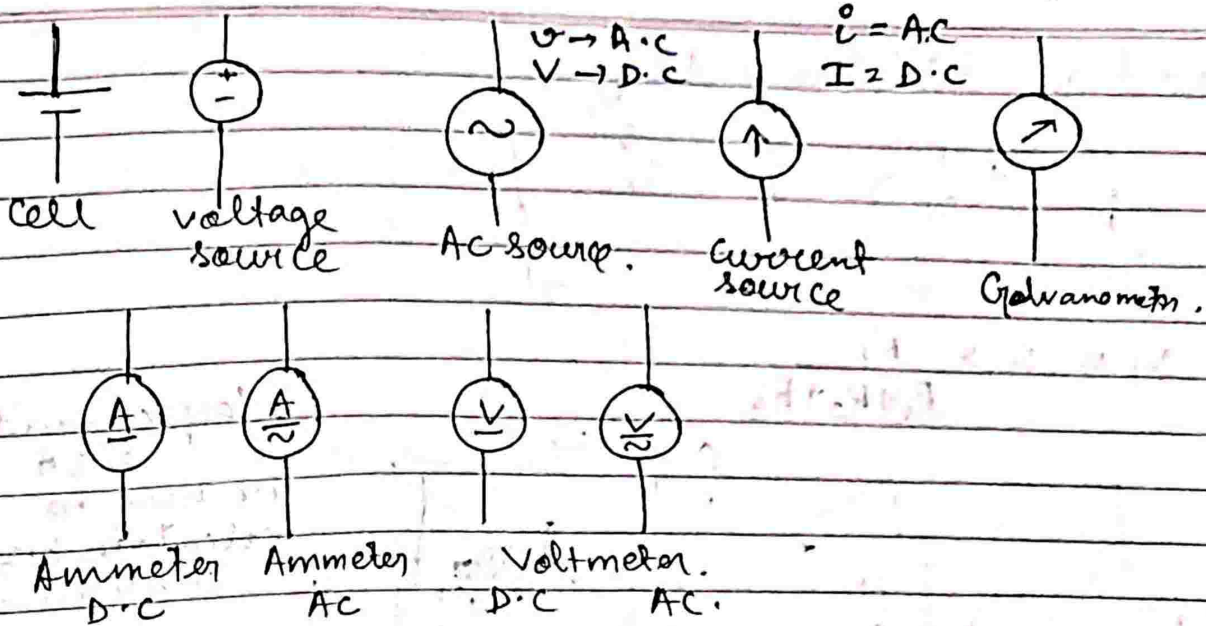 v → A.C
V → D.C
i = A.C
I = D.C
+
-
~
Cell
voltage
source
AC source.
current
source
Galvanometer.
A
A
~
V
V
~
Ammeter
D.C
Ammeter
AC
Voltmeter.
D.C
AC.